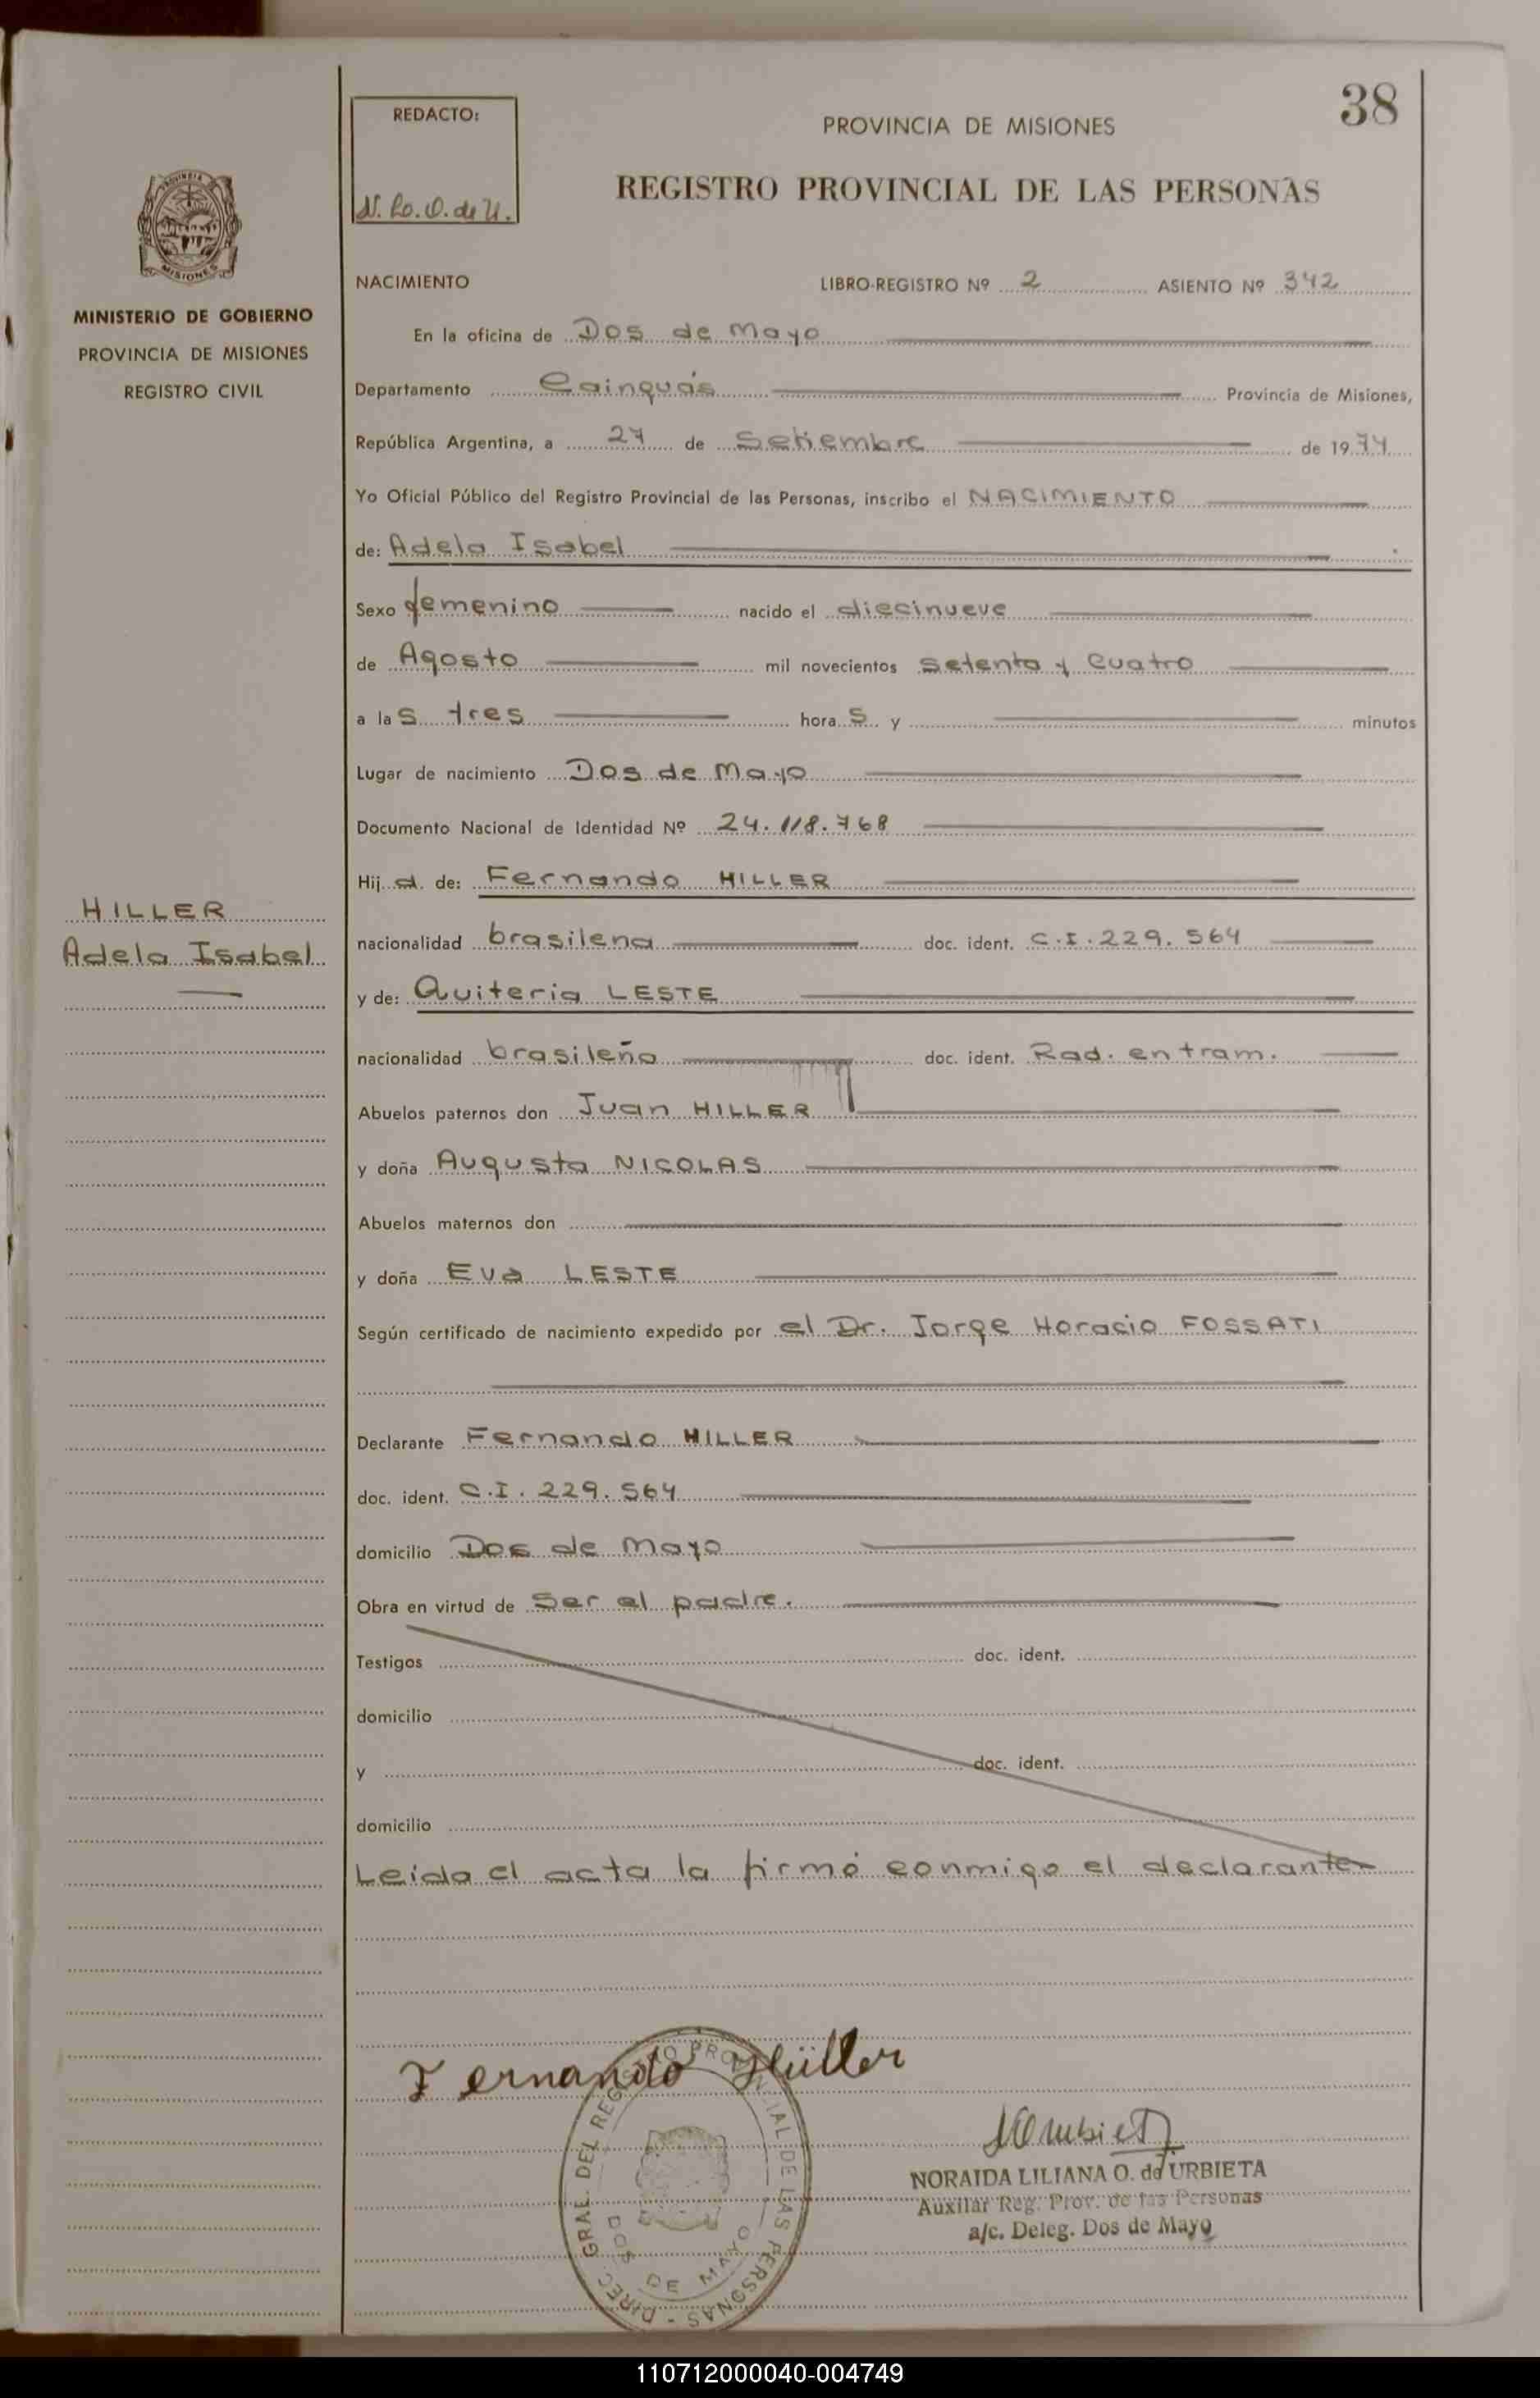 38
REDACTO:
PROVINCIA DE MISIONES
REGISTRO PROVINCIAL DE LAS PERSONAS
PROVINCIA
MISIONES
MINISTERIO DE GOBIERNO
PROVINCIA DE MISIONES
REGISTRO CIVIL
NACIMIENTO LIBRO-REGISTRO Nº 2 ASIENTO Nº 342
En la oficina de Dos de Mayo
Departamento Cainguás Provincia de Misiones,
República Argentina, a 27 de Setiembre de 1974
Yo Oficial Público del Registro Provincial de las Personas, inscribo el NACIMIENTO
de: Adela Isabel
Sexo femenino nacido el diecinueve
de Agosto mil novecientos setenta y cuatro
a las tres horas y minutos
Lugar de nacimiento Dos de Mayo
Documento Nacional de Identidad Nº 24.118.768
Hija de: Fernando HILLER
HILLER
Adela Isabel
nacionalidad brasilena doc. ident. C.I. 229.564
y de: Quiteria LESTE
nacionalidad brasileña doc. ident. Rad. en tram.
Abuelos paternos don Juan HILLER
y doña Augusta NICOLAS
Abuelos maternos don
y doña Eva LESTE
Según certificado de nacimiento expedido por el Dr. Jorge Horacio FOSSATI
Declarante Fernando HILLER
doc. ident. C.I. 229.564
domicilio Dos de Mayo
Obra en virtud de ser el padre.
Testigos doc. ident.
domicilio
y doc. ident.
domicilio
Leída el acta la firmó conmigo el declarante
Fernando Hüller
DIREC. GRAL. DEL REGISTRO PROVINCIAL DE LAS PERSONAS -
DOS DE MAYO
NORAIDA LILIANA O. de URBIETA
Auxiliar Reg. Prov. de las Personas
a/c. Deleg. Dos de Mayo
110712000040-004749